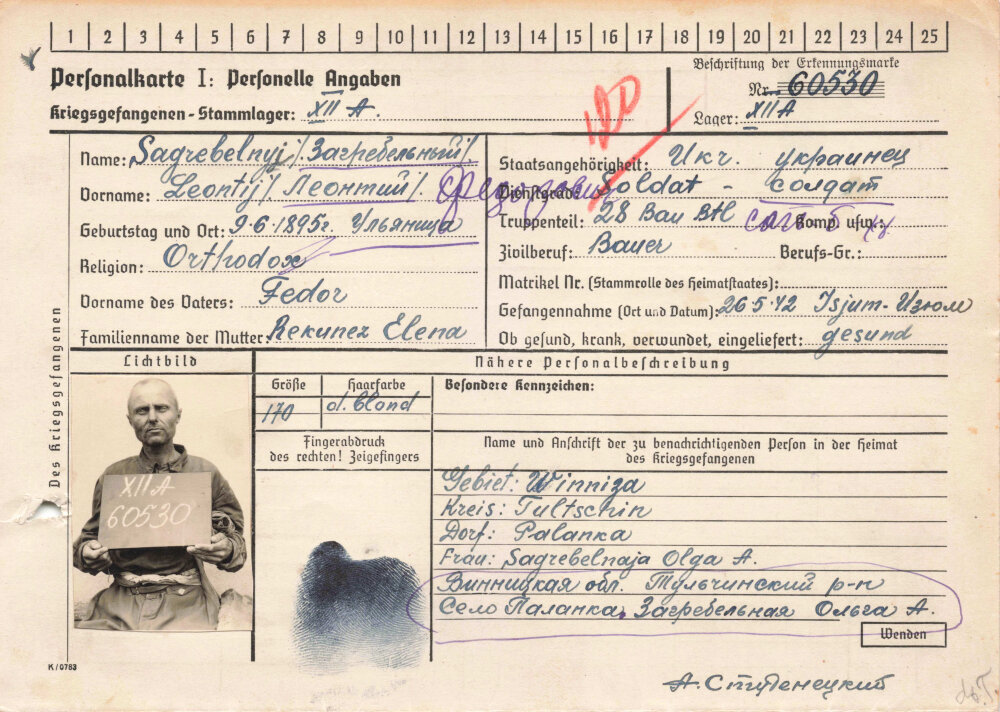 1 2 3 4 5 6 7 8 9 10 11 12 13 14 15 16 17 18 19 20 21 22 23 24 25
Personalkarte I: Personelle Angaben
Kriegsgefangenen-Stammlager: XII A.
Beschriftung der Erkennungsmarke
Nr. 60530
Lager: XII A
Des Kriegsgefangenen
Name: Sagrebelnyj /Загребельный/.
Vorname: Leontij /Леонтий/. Федорович
Geburtstag und Ort: 9.6.1895г. Ульяница
Religion: Orthodox
Vorname des Vaters: Fedor
Familienname der Mutter: Rekunez Elena
Staatsangehörigkeit: Икч. украинец
Dienstgrad: Soldat - солдат
Truppenteil: 28 Bau Btl Komp. usw.:
Zivilberuf: Bauer Berufs-Gr.:
Matrikel Nr. (Stammrolle des Heimatstaates):
Gefangennahme (Ort und Datum): 26.5.42 Isjum-Изюм
Ob gesund, krank, verwundet, eingeliefert: gesund
Lichtbild
XII A
60530
Nähere Personalbeschreibung
Größe Haarfarbe
170 d. blond
Besondere Kennzeichen:
Fingerabdruck
des rechten! Zeigefingers
Name und Anschrift der zu benachrichtigenden Person in der Heimat
des Kriegsgefangenen
Gebiet: Winniza
Kreis: Tultschin
Dorf: Palanka
Frau: Sagrebelnaja Olga A.
Винницкая обл. Тульчинский р-н
Село Паланка. Загребельная Ольга А.
Wenden
K/0783
А. Студенецкий